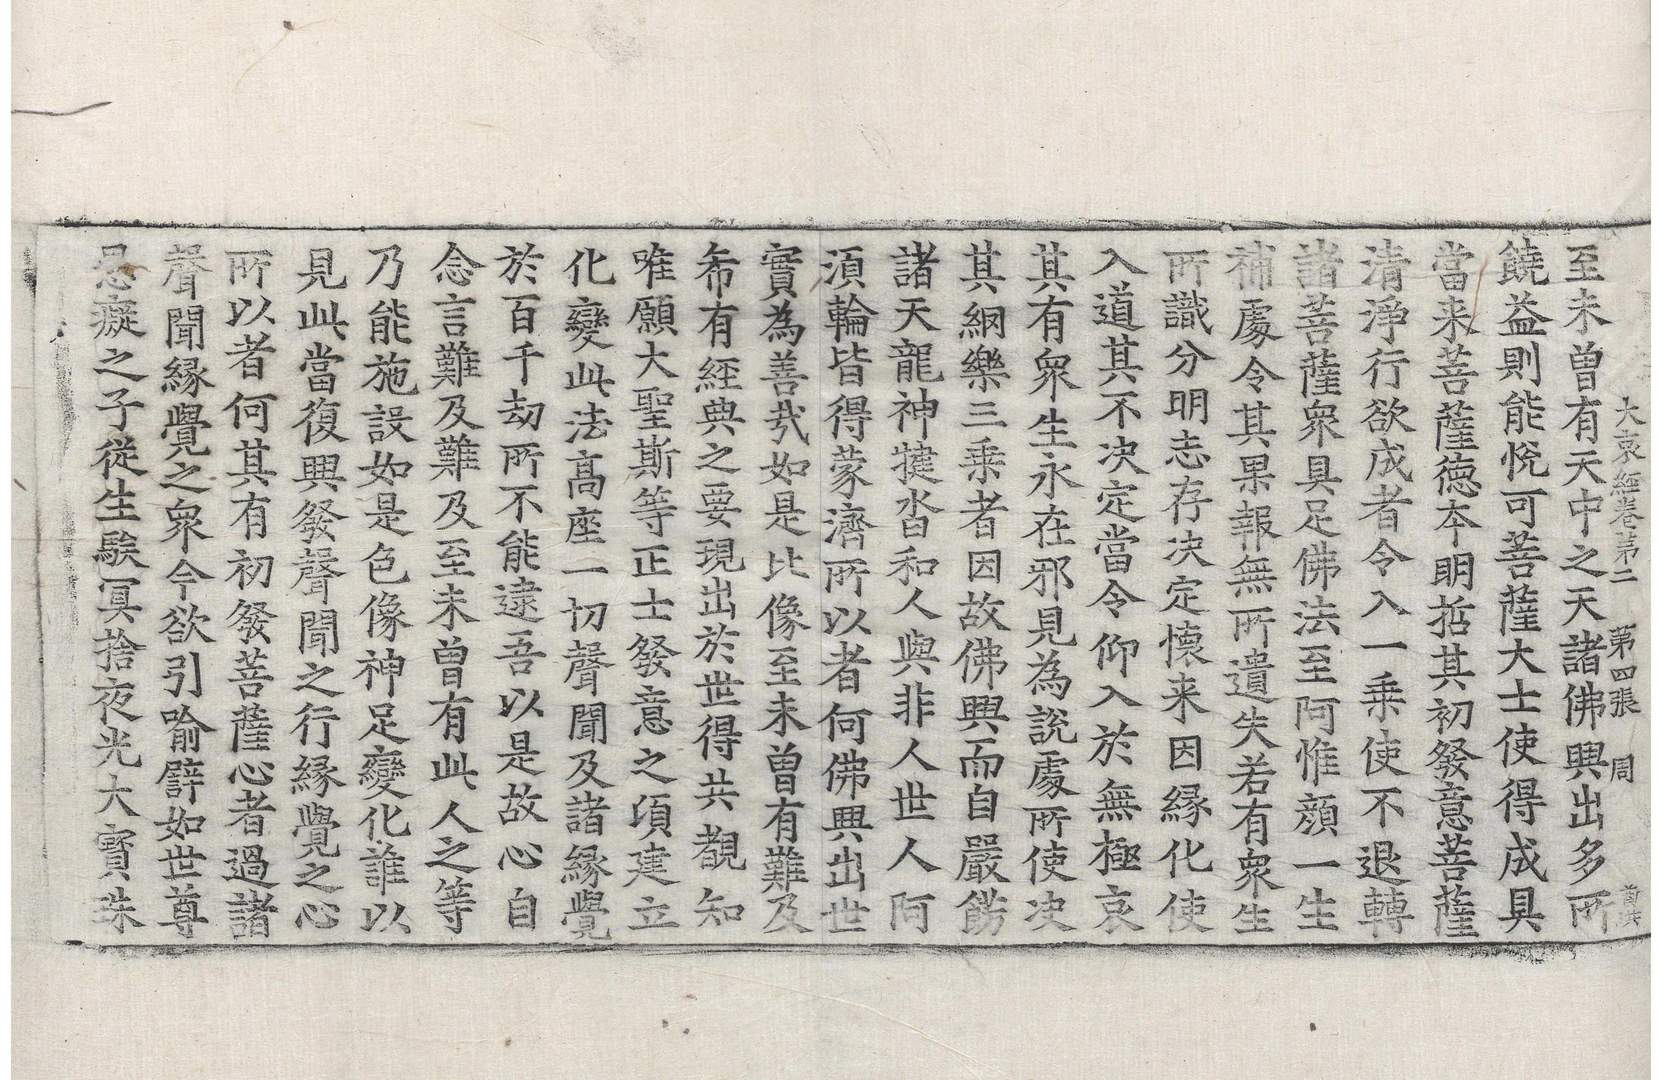 大哀經卷第二　第四張　周
至未曾有天中之天諸佛興出多所
饒益則能悅可菩薩大士使得成具
當来菩薩德本明哲其初發意菩薩
清淨行欲成者令入一乗使不退轉
諸菩薩衆具足佛法至阿惟顔一生
補處令其果報無所遺失若有衆生
所識分明志存决定懷来因緣化使
入道其不决定當令仰入於無極哀
其有衆生永在邪見為說處所使决
其網樂三乗者因故佛興而自嚴餝
諸天龍神揵沓和人與非人世人阿
須輪皆得蒙濟所以者何佛興出世
實為善㢤如是比像至未曾有難及
希有經典之要現出於世得共覩知
唯願大聖斯等正士發意之頃建立
化變此法高座一切聲聞及諸緣覺
於百千劫所不能逮吾以是故心自
念言難及難及至未曾有此人之等
乃能施設如是色像神足變化誰以
見此當復興發聲聞之行緣覺之心
所以者何其有初發菩薩心者過諸
聲聞緣覺之衆今欲引喻譬如世尊
愚癡之子從生騃冥捨夜光大寳珠